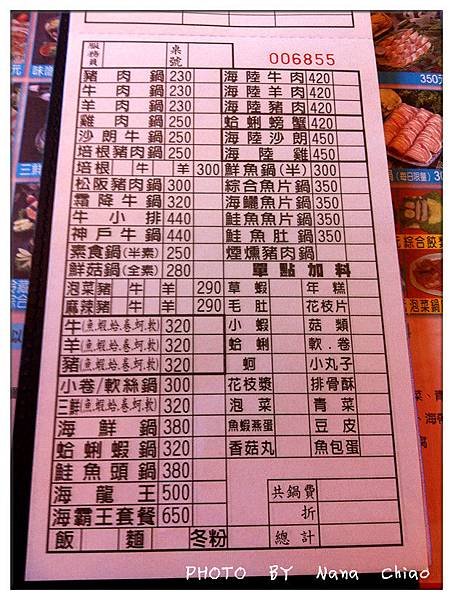 服務員
桌號
006855
豬肉鍋 230 海陸牛肉 420
牛肉鍋 230 海陸羊肉 420
羊肉鍋 230 海陸豬肉 420
雞肉鍋 250 蛤蜊螃蟹 420
沙朗牛鍋 250 海陸沙朗 450
培根豬肉鍋 250 海陸雞 450
培根 牛 羊 300 鮮魚鍋(半) 300
松阪豬肉鍋 300 綜合魚片鍋 350
霜降牛鍋 320 海鱺魚片鍋 350
牛小排 440 鮭魚魚片鍋 350
神戶牛鍋 440 鮭魚肚鍋 350
素食鍋(半素) 250 煙燻豬肉鍋
鮮菇鍋(全素) 280 單點加料
泡菜豬 牛 羊 290 草蝦 年糕
麻辣豬 牛 羊 290 毛肚 花枝片
牛(魚.蝦.蛤.卷.蚵.軟) 320 小蝦 菇類
羊(魚.蝦.蛤.卷.蚵.軟) 320 蛤蜊 軟.卷
豬(魚.蝦.蛤.卷.蚵.軟) 320 蚵 小丸子
小卷/軟絲鍋 300 花枝漿 排骨酥
三鮮(魚.蝦.蛤.卷.蚵.軟) 320 泡菜 青菜
海鮮鍋 380 魚蝦燕蛋 豆皮
蛤蜊蝦鍋 320 香菇丸 魚包蛋
鮭魚頭鍋 380
海龍王 500 共鍋費
海霸王套餐 650 折
飯 麵 冬粉 總計
350元
PHOTO BY Nana Chiao